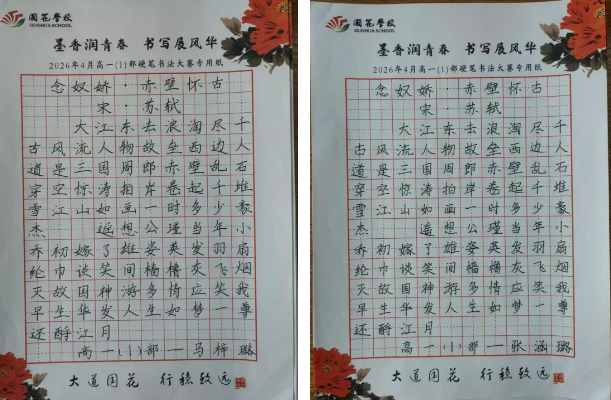 國花學校
GUOHUA SCHOOL
墨香润青春 书写展风华
2026年4月高一(1)部硬笔书法大赛专用纸
念奴娇·赤壁怀古
宋·苏轼
大江东去浪淘尽千
古风流人物故垒西边人
道是三国周郎赤壁乱石
穿空惊涛拍岸卷起千堆
雪江山如画一时多少豪
杰 遥想公瑾当年小
乔初嫁了雄姿英发羽扇
纶巾谈笑间樯橹灰飞烟
灭故国神游多情应笑我
早生华发人生如梦一尊
还酹江月
高一(1)部一马梓璐
大道国花 行稳致远
國花學校
GUOHUA SCHOOL
墨香润青春 书写展风华
2026年4月高一(1)部硬笔书法大赛专用纸
念奴娇·赤壁怀古
宋·苏轼
大江东去浪淘尽千
古风流人物故垒西边人
道是三国周郎赤壁乱石
穿空惊涛拍岸卷起千堆
雪江山如画一时多少豪
杰 遥想公瑾当年小
乔初嫁了雄姿英发羽扇
纶巾谈笑间樯橹灰飞烟
灭故国神游多情应笑我
早生华发人生如梦一尊
还酹江月
高一(1)部一张涵璐
大道国花 行稳致远